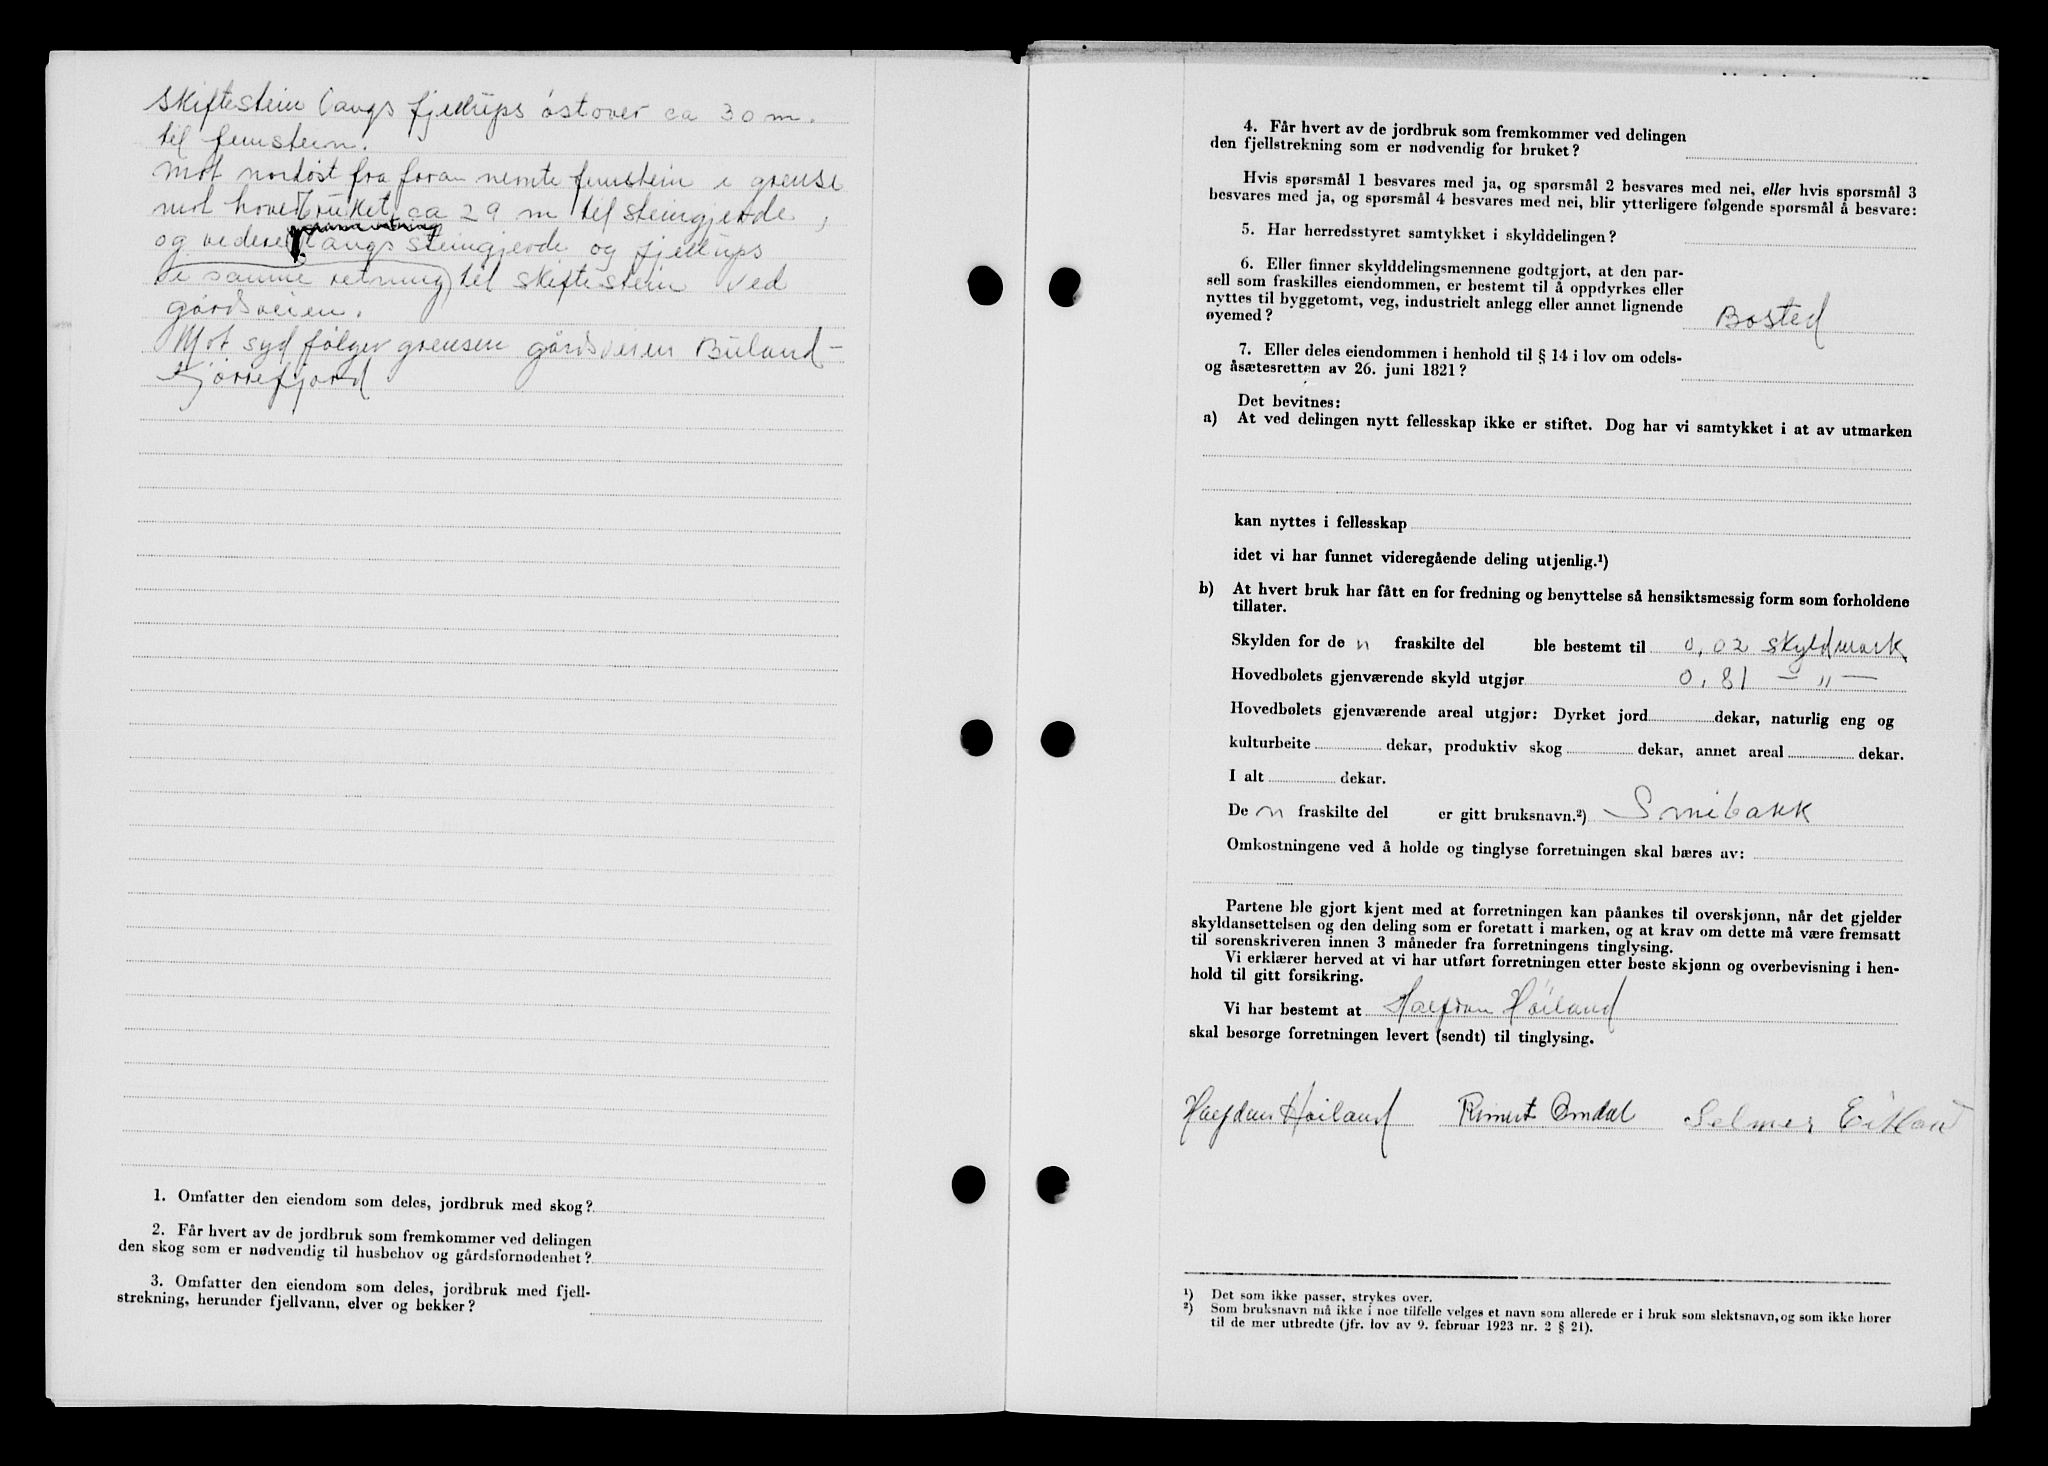 Skiftestein langs fjellrygs östover ca 30 m.
til femstein.
Mot nordöst fra foran nevnte femstein i grense
mot hovedbruket, ca 29 m til steingjerde,
og videre langs steingjerde og fjellrygs
i samme retning til skiftestein ved
gårdsveien.
Mot syd følger grensen gårdsveien Buland-
1. Omfatter den eiendom som deles, jordbruk med skog?
2. Får hvert av de jordbruk som fremkommer ved delingen
den skog som er nødvendig til husbehov og gårdsfornødenhet?
3. Omfatter den eiendom som deles, jordbruk med fjell-
strekning, herunder fjellvann, elver og bekker?
4. Får hvert av de jordbruk som fremkommer ved delingen
den fjellstrekning som er nødvendig for bruket?
Hvis spørsmål 1 besvares med ja, og spørsmål 2 besvares med nei, eller hvis spørsmål 3
besvares med ja, og spørsmål 4 besvares med nei, blir ytterligere følgende spørsmål å besvare:
5. Har herredsstyret samtykket i skylddelingen?
6. Eller finner skylddelingsmennene godtgjort, at den par-
sell som fraskilles eiendommen, er bestemt til å oppdyrkes eller
nyttes til byggetomt, veg, industrielt anlegg eller annet lignende
øyemed? Bosted
7. Eller deles eiendommen i henhold til § 14 i lov om odels-
og åsætesretten av 26. juni 1821?
Det bevitnes:
a) At ved delingen nytt fellesskap ikke er stiftet. Dog har vi samtykket i at av utmarken
kan nyttes i fellesskap
idet vi har funnet videregående deling utjenlig.¹)
b) At hvert bruk har fått en for fredning og benyttelse så hensiktsmessig form som forholdene
tillater.
Skylden for de n fraskilte del ble bestemt til 0,02 skyldmark
Hovedbølets gjenværende skyld utgjør 0,81 — „ —
Hovedbølets gjenværende areal utgjør: Dyrket jord dekar, naturlig eng og
kulturbeite dekar, produktiv skog dekar, annet areal dekar.
I alt dekar.
De n fraskilte del er gitt bruksnavn.²) Smibakk
Omkostningene ved å holde og tinglyse forretningen skal bæres av:
Partene ble gjort kjent med at forretningen kan påankes til overskjønn, når det gjelder
skyldansettelsen og den deling som er foretatt i marken, og at krav om dette må være fremsatt
til sorenskriveren innen 3 måneder fra forretningens tinglysing.
Vi erklærer herved at vi har utført forretningen etter beste skjønn og overbevisning i hen-
hold til gitt forsikring.
Vi har bestemt at Halfdan Höiland
skal besørge forretningen levert (sendt) til tinglysing.
Halfdan Höiland Reinert Omdal Selmer Eikland
¹) Det som ikke passer, strykes over.
²) Som bruksnavn må ikke i noe tilfelle velges et navn som allerede er i bruk som slektsnavn, og som ikke hører
til de mer utbredte (jfr. lov av 9. februar 1923 nr. 2 § 21).